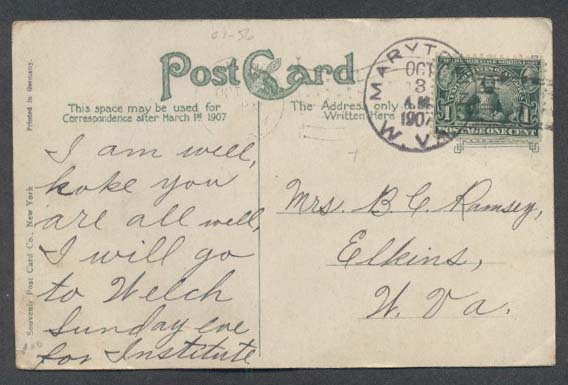 07-56
Post Card
This space may be used for
Correspondence after March 1st 1907
The Address only
Written Here
OCT
3
A.M.
1907
W. VA.
1
1
POSTAGE ONE CENT
Printed in Germany.
Souvenir Post Card Co., New York
I am well,
hoke you
are all well,
I will go
to Welch
Sunday eve
for Institute
Mrs. B. C. Ramsey,
Elkins,
W. Va.